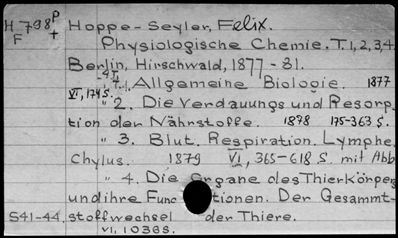 H 798 P Hoppe-Seyler, Felix.
F + Physiologische Chemie. T. 1, 2, 3, 4.
Berlin, Hirschwald, 1877 - 81.
T. 1. Allgemeine Biologie. 1877
VI, 174 S. " 2. Die Verdauungs und Resorp-
tion der Nährstoffe. 1878 175-363 S.
" 3. Blut. Respiration. Lymphe.
Chylus. 1879 VI, 365-618 S. mit Abb
" 4. Die Organe des Thierkörpers
und ihre Functionen. Der Gesammt-
S41-44. stoffwechsel der Thiere.
VI, 1036 S.